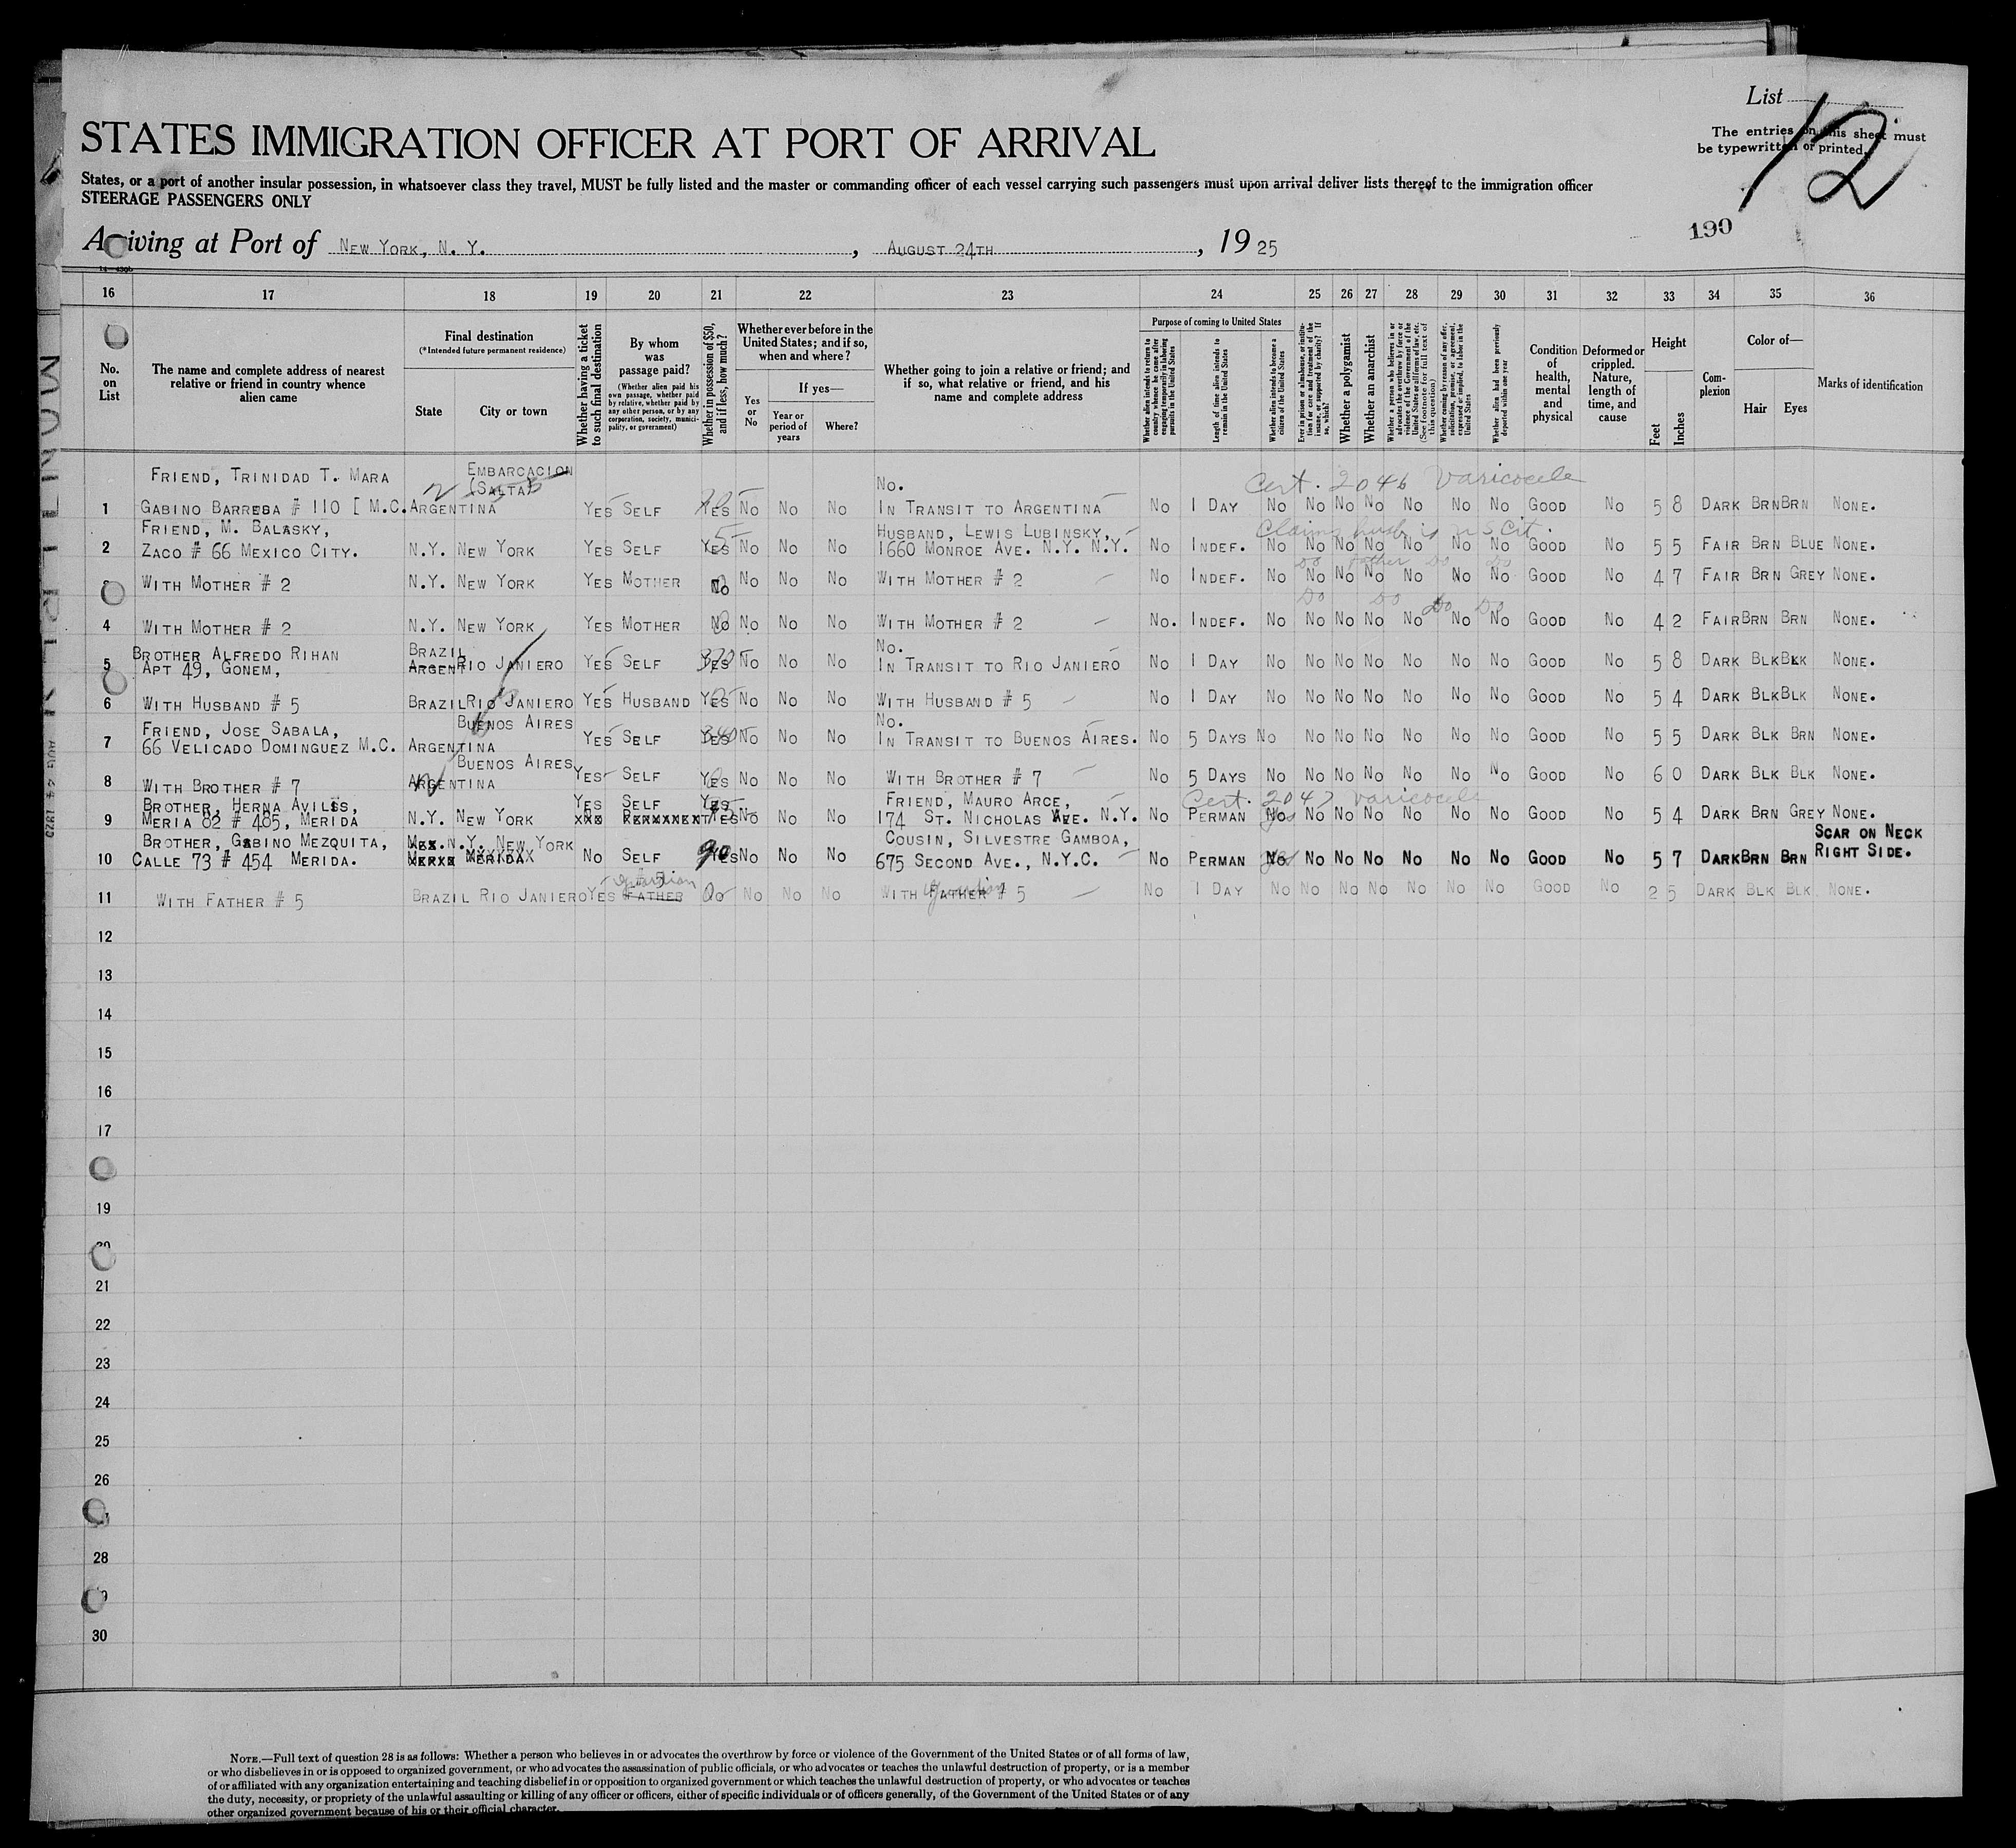 List
12
The entries on this sheet must
be typewritten or printed.
STATES IMMIGRATION OFFICER AT PORT OF ARRIVAL
States, or a port of another insular possession, in whatsoever class they travel, MUST be fully listed and the master or commanding officer of each vessel carrying such passengers must upon arrival deliver lists thereof to the immigration officer
STEERAGE PASSENGERS ONLY
190
Arriving at Port of New York, N. Y. , August 24th , 19 25
16 17 18 19 20 21 22 23 24 25 26 27 28 29 30 31 32 33 34 35 36
No. on List
The name and complete address of nearest relative or friend in country whence alien came
Final destination
(*Intended future permanent residence)
State
City or town
Whether having a ticket to such final destination
By whom was passage paid?
(Whether alien paid his own passage, whether paid by relative, whether paid by any other person, or by any corporation, society, municipality, or government)
Whether in possession of $50, and if less, how much?
Whether ever before in the United States; and if so, when and where?
Yes or No
If yes—
Year or period of years
Where?
Whether going to join a relative or friend; and if so, what relative or friend, and his name and complete address
Purpose of coming to United States
Whether alien intends to return to country whence he came after engaging temporarily in laboring pursuits in the United States
Length of time alien intends to remain in the United States
Whether alien intends to become a citizen of the United States
Ever in prison or almshouse, or institution for care and treatment of the insane, or supported by charity? If so, which?
Whether a polygamist
Whether an anarchist
Whether a person who believes in or advocates the overthrow by force or violence of the Government of the United States or all forms of law, etc. (See footnote for full text of this question)
Whether coming by reason of any offer, solicitation, promise, or agreement, expressed or implied, to labor in the United States
Whether alien had been previously deported within one year
Condition of health, mental and physical
Deformed or crippled. Nature, length of time, and cause
Height
Feet
Inches
Complexion
Color of—
Hair
Eyes
Marks of identification
Friend, Trinidad T. Mara Embarcacion (Salta) No. Cert. 2046 Varicocele
1 Gabino Barreba # 110 [ M.C. Argentina Yes Self Yes No No No In Transit to Argentina No 1 Day No No No No No No No Good No 5 8 Dark Brn Brn None.
Friend, M. Balasky, Husband, Lewis Lubinsky, Claims husb is U S Cit.
2 Zaco # 66 Mexico City. N.Y. New York Yes Self Yes No No No 1660 Monroe Ave. N.Y. N.Y. No Indef. No No No No No No No Good No 5 5 Fair Brn Blue None.
Do father Do Do
With Mother # 2 N.Y. New York Yes Mother No No No No With Mother # 2 No Indef. No No No No No No No Good No 4 7 Fair Brn Grey None.
Do Do Do Do
4 With Mother # 2 N.Y. New York Yes Mother No No No No With Mother # 2 No. Indef. No No No No No No No Good No 4 2 Fair Brn Brn None.
Brother Alfredo Rihan Brazil No.
5 Apt 49, Gonem, Argen Rio Janiero Yes Self Yes No No No In Transit to Rio Janiero No 1 Day No No No No No No No Good No 5 8 Dark Blk Blk None.
6 With Husband # 5 Brazil Rio Janiero Yes Husband Yes No No No With Husband # 5 No 1 Day No No No No No No No Good No 5 4 Dark Blk Blk None.
Friend, Jose Sabala, Buenos Aires No.
7 66 Velicado Dominguez M.C. Argentina Yes Self Yes No No No In Transit to Buenos Aires. No 5 Days No No No No No No No Good No 5 5 Dark Blk Brn None.
Buenos Aires
8 With Brother # 7 Argentina Yes Self Yes No No No With Brother # 7 No 5 Days No No No No No No No Good No 6 0 Dark Blk Blk None.
Brother, Herna Aviles, Yes Self Yes Friend, Mauro Arce, Cert. 2047 Varicocele
9 Meria 82 # 485, Merida N.Y. New York No No No 174 St. Nicholas Ave. N.Y. No Perman Yes No No No No No No Good No 5 4 Dark Brn Grey None.
Brother, Gabino Mezquita, N.Y. New York Cousin, Silvestre Gamboa, Scar on Neck
10 Calle 73 # 454 Merida. Merida No Self 90 Yes No No No 675 Second Ave., N.Y.C. No Perman No yes No No No No No No Good No 5 7 Dark Brn Brn Right Side.
guardian guardian
11 With Father # 5 Brazil Rio Janiero Yes Father No No No With Father # 5 No 1 Day No No No No No No No Good No 2 5 Dark Blk Blk None.
12
13
14
15
16
17
19
21
22
23
24
25
26
28
30
Note.—Full text of question 28 is as follows: Whether a person who believes in or advocates the overthrow by force or violence of the Government of the United States or of all forms of law,
or who disbelieves in or is opposed to organized government, or who advocates the assassination of public officials, or who advocates or teaches the unlawful destruction of property, or is a member
of or affiliated with any organization entertaining and teaching disbelief in or opposition to organized government or which teaches the unlawful destruction of property, or who advocates or teaches
the duty, necessity, or propriety of the unlawful assaulting or killing of any officer or officers, either of specific individuals or of officers generally, of the Government of the United States or of any
other organized government because of his or their official character.